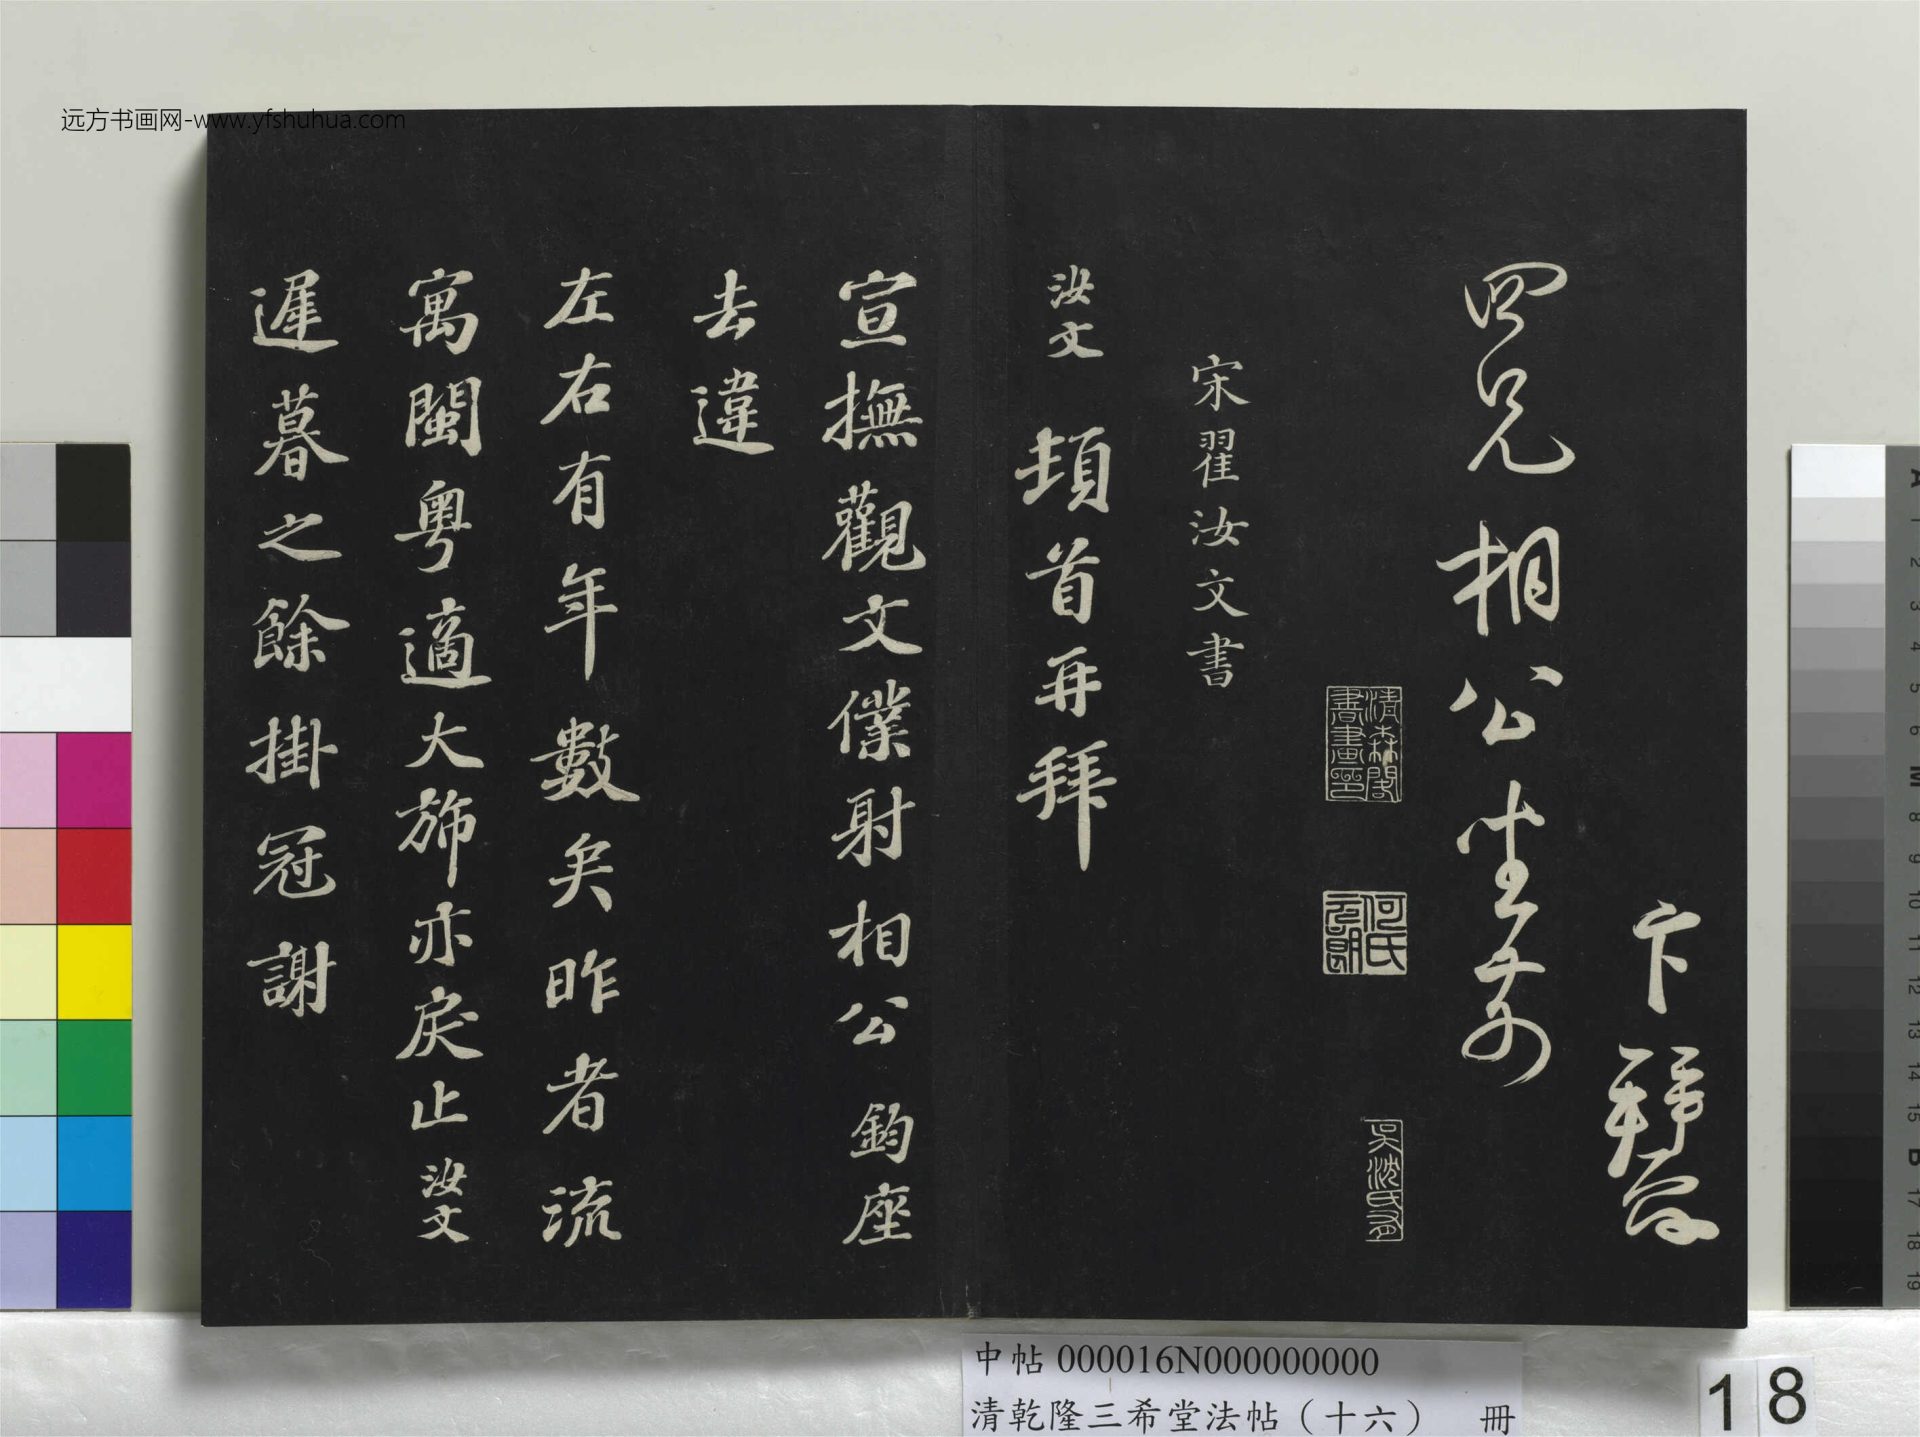 远方书画网-www.yfshuhua.com
卞拜啓
四兄相公坐前
清森閣書畫印
何氏元朗
宋翟汝文書
汝文頓首再拜
宣撫觀文僕射相公鈞座
去違
左右有年數矣昨者流
寓閩粵適大旆亦戾止汝文
遲暮之餘掛冠謝
中帖 000016N000000000
清乾隆三希堂法帖（十六） 冊
18